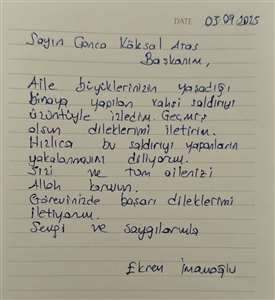 DATE 03.09.2025
Sayın Gonca Köksal Aras
Başkanım,
Aile büyüklerinizin yaşadığı
binaya yapılan vahşi saldırıyı
üzüntüyle izledim. Geçmiş
olsun dileklerimi iletirim.
Hızlıca bu saldırıyı yapanların
yakalanmasını diliyorum.
Sizi ve tüm ailenizi
Allah korusun.
Görevinizde başarı dileklerimi
iletiyorum.
Sevgi ve saygılarımla
Ekrem İmamoğlu